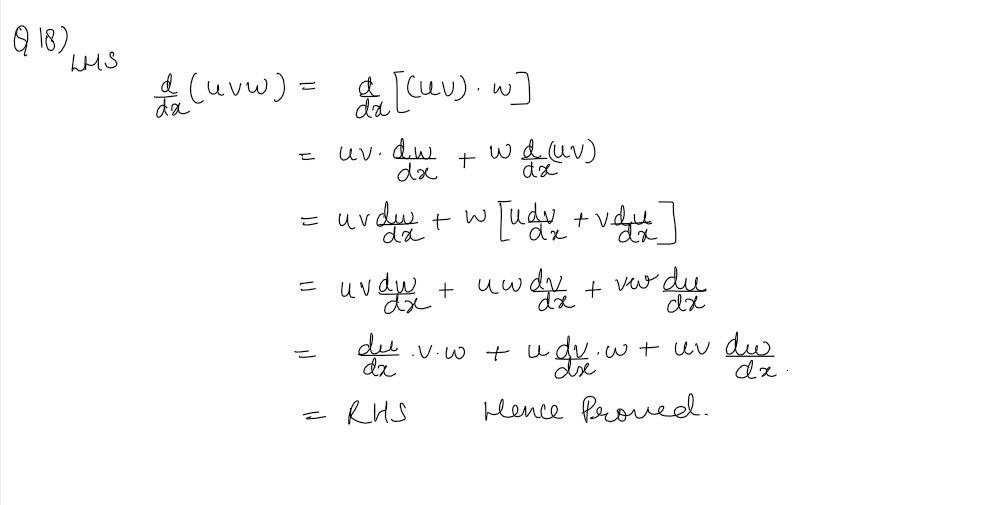 Q 18)
LHS
d/dx (uvw) = d/dx [(uv) · w]
= uv · dw/dx + w d/dx (uv)
= uv dw/dx + w [u dv/dx + v du/dx]
= uv dw/dx + uw dv/dx + vw du/dx
= du/dx · v · w + u dv/dx · w + uv dw/dx .
= RHS Hence Proved.